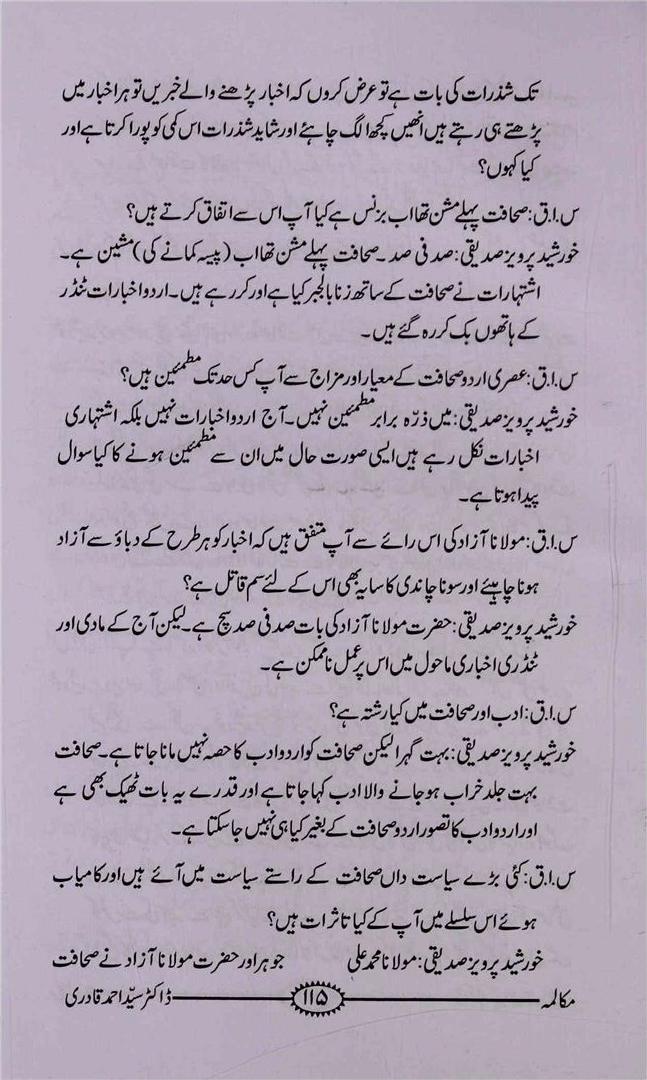 تک شذرات کی بات ہے تو عرض کروں کہ اخبار پڑھنے والے خبریں تو ہر اخبار میں
پڑھتے ہی رہتے ہیں انھیں کچھ الگ چاہئے اور شاید شذرات اس کمی کو پورا کرتا ہے اور
کیا کہوں؟
س.ا.ق: صحافت پہلے مشن تھا اب بزنس ہے کیا آپ اس سے اتفاق کرتے ہیں؟
خورشید پرویز صدیقی: صد فی صد۔ صحافت پہلے مشن تھا اب (پیسہ کمانے کی) مشین ہے۔
اشتہارات نے صحافت کے ساتھ زنا بالجبر کیا ہے اور کر رہے ہیں۔ اردو اخبارات ٹنڈر
کے ہاتھوں بک کر رہ گئے ہیں۔
س.ا.ق: عصری اردو صحافت کے معیار اور مزاج سے آپ کس حد تک مطمئین ہیں؟
خورشید پرویز صدیقی: میں ذرّہ برابر مطمئین نہیں۔ آج اردو اخبارات نہیں بلکہ اشتہاری
اخبارات نکل رہے ہیں ایسی صورت حال میں ان سے مطمئین ہونے کا کیا سوال
پیدا ہوتا ہے۔
س.ا.ق: مولانا آزاد کی اس رائے سے آپ متفق ہیں کہ اخبار کو ہر طرح کے دباؤ سے آزاد
ہونا چاہیئے اور سونا چاندی کا سایہ بھی اس کے لئے سم قاتل ہے؟
خورشید پرویز صدیقی: حضرت مولانا آزاد کی بات صد فی صد سچ ہے۔ لیکن آج کے مادی اور
ٹنڈری اخباری ماحول میں اس پر عمل ناممکن ہے۔
س.ا.ق: ادب اور صحافت میں کیا رشتہ ہے؟
خورشید پرویز صدیقی: بہت گہرا لیکن صحافت کو اردو ادب کا حصہ نہیں مانا جاتا ہے۔ صحافت
بہت جلد خراب ہو جانے والا ادب کہا جاتا ہے اور قدرے یہ بات ٹھیک بھی ہے
اور اردو ادب کا تصور اردو صحافت کے بغیر کیا ہی نہیں جا سکتا ہے۔
س.ا.ق: کئی بڑے سیاست داں صحافت کے راستے سیاست میں آئے ہیں اور کامیاب
ہوئے اس سلسلے میں آپ کے کیا تاثرات ہیں؟
خورشید پرویز صدیقی: مولانا محمد علی جوہر اور حضرت مولانا آزاد نے صحافت
مکالمہ ۱۱۵ ڈاکٹر سیّد احمد قادری